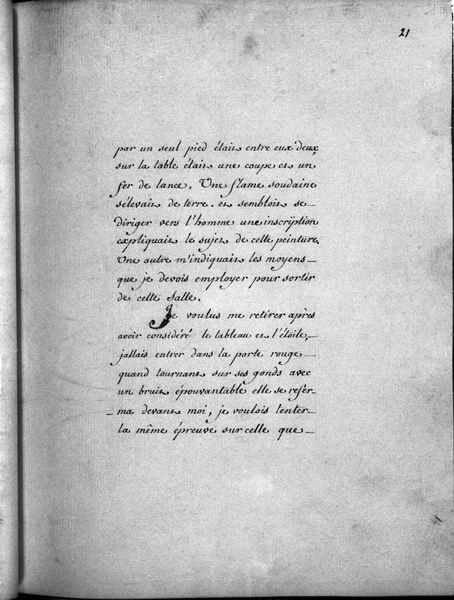 21
par un seul pied étais entre eux deux
sur la table étais une coupe et un
fer de lance. Une flame soudaine
sélevais de terre. et semblois se
diriger vers l'homme une inscription
expliquais le sujet de cette peinture
Une autre m'indiquais les moyens
que je devois employer pour sortir
de cette Salle.
Je voulus me retirer après
avoir considéré le tableau et l'étoile,
jallais entrer dans la porte rouge
quand tournant sur ses gonds avec
un bruit épouvantable elle se refer-
ma devant moi, je voulois tenter
la même épreuve sur celle que